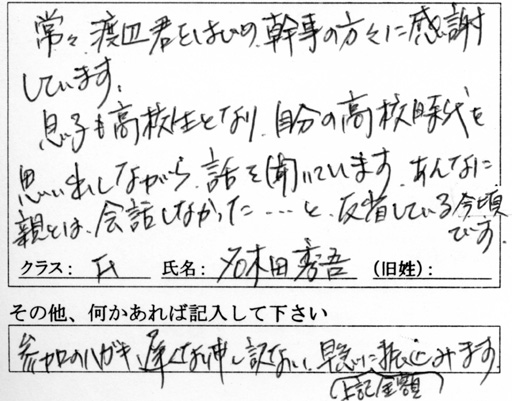 常々、渡辺君をはじめ、幹事の方々に感謝
しています。
息子も高校生となり、自分の高校時代を
思い出しながら、話を聞いています。あんなに
親とは、会話しなかった……と、反省している今頃
です。
クラス： 氏名： 名木田秀吾 （旧姓）：
その他、何かあれば記入して下さい
参加のハガキ、遅くなり申し訳ない、早急に振込みます
（上記金額）